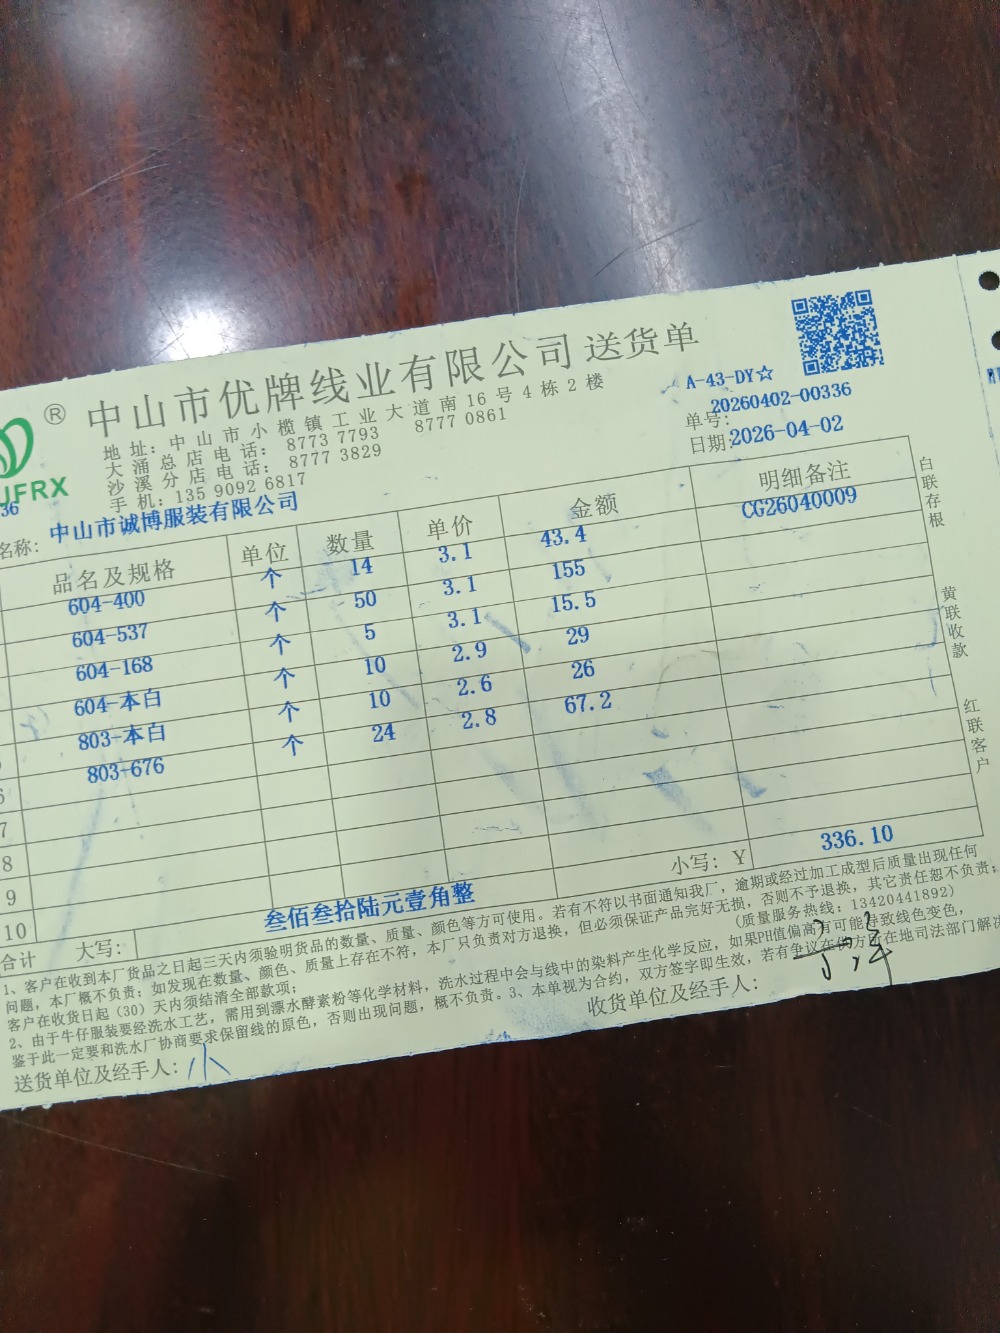 ®
中山市优牌线业有限公司 送货单
UFRX
地 址：中山市小榄镇工业大道南16号4栋2楼
大涌总店电话：8773 7793 8777 0861
沙溪分店电话：8777 3829
手 机：135 9092 6817
A-43-DY☆
单号：20260402-00336
日期：2026-04-02
36
名称：中山市诚博服装有限公司
品名及规格 单位 数量 单价 金额 明细备注
604-400 个 14 3.1 43.4 CG26040009
604-537 个 50 3.1 155
604-168 个 5 3.1 15.5
604-本白 个 10 2.9 29
803-本白 个 10 2.6 26
803-676 个 24 2.8 67.2
6
7
8
9
10
合计 大写：叁佰叁拾陆元壹角整 小写：Y 336.10
1、客户在收到本厂货品之日起三天内须验明货品的数量、质量、颜色等方可使用。若有不符以书面通知我厂，逾期或经过加工成型后质量出现任何
问题，本厂概不负责；如发现在数量、颜色、质量上存在不符，本厂只负责对方退换，但必须保证产品完好无损，否则不予退换，其它责任恕不负责；
客户在收货日起（30）天内须结清全部款项； （质量服务热线：13420441892）
2、由于牛仔服装要经洗水工艺，需用到漂水酵素粉等化学材料，洗水过程中会与线中的染料产生化学反应，如果PH值偏高有可能导致线色变色，
鉴于此一定要和洗水厂协商要求保留线的原色，否则出现问题，概不负责。3、本单视为合约，双方签字即生效，若有争议在供方所在地司法部门解决
送货单位及经手人：小 收货单位及经手人：
白联存根
黄联收款
红联客户